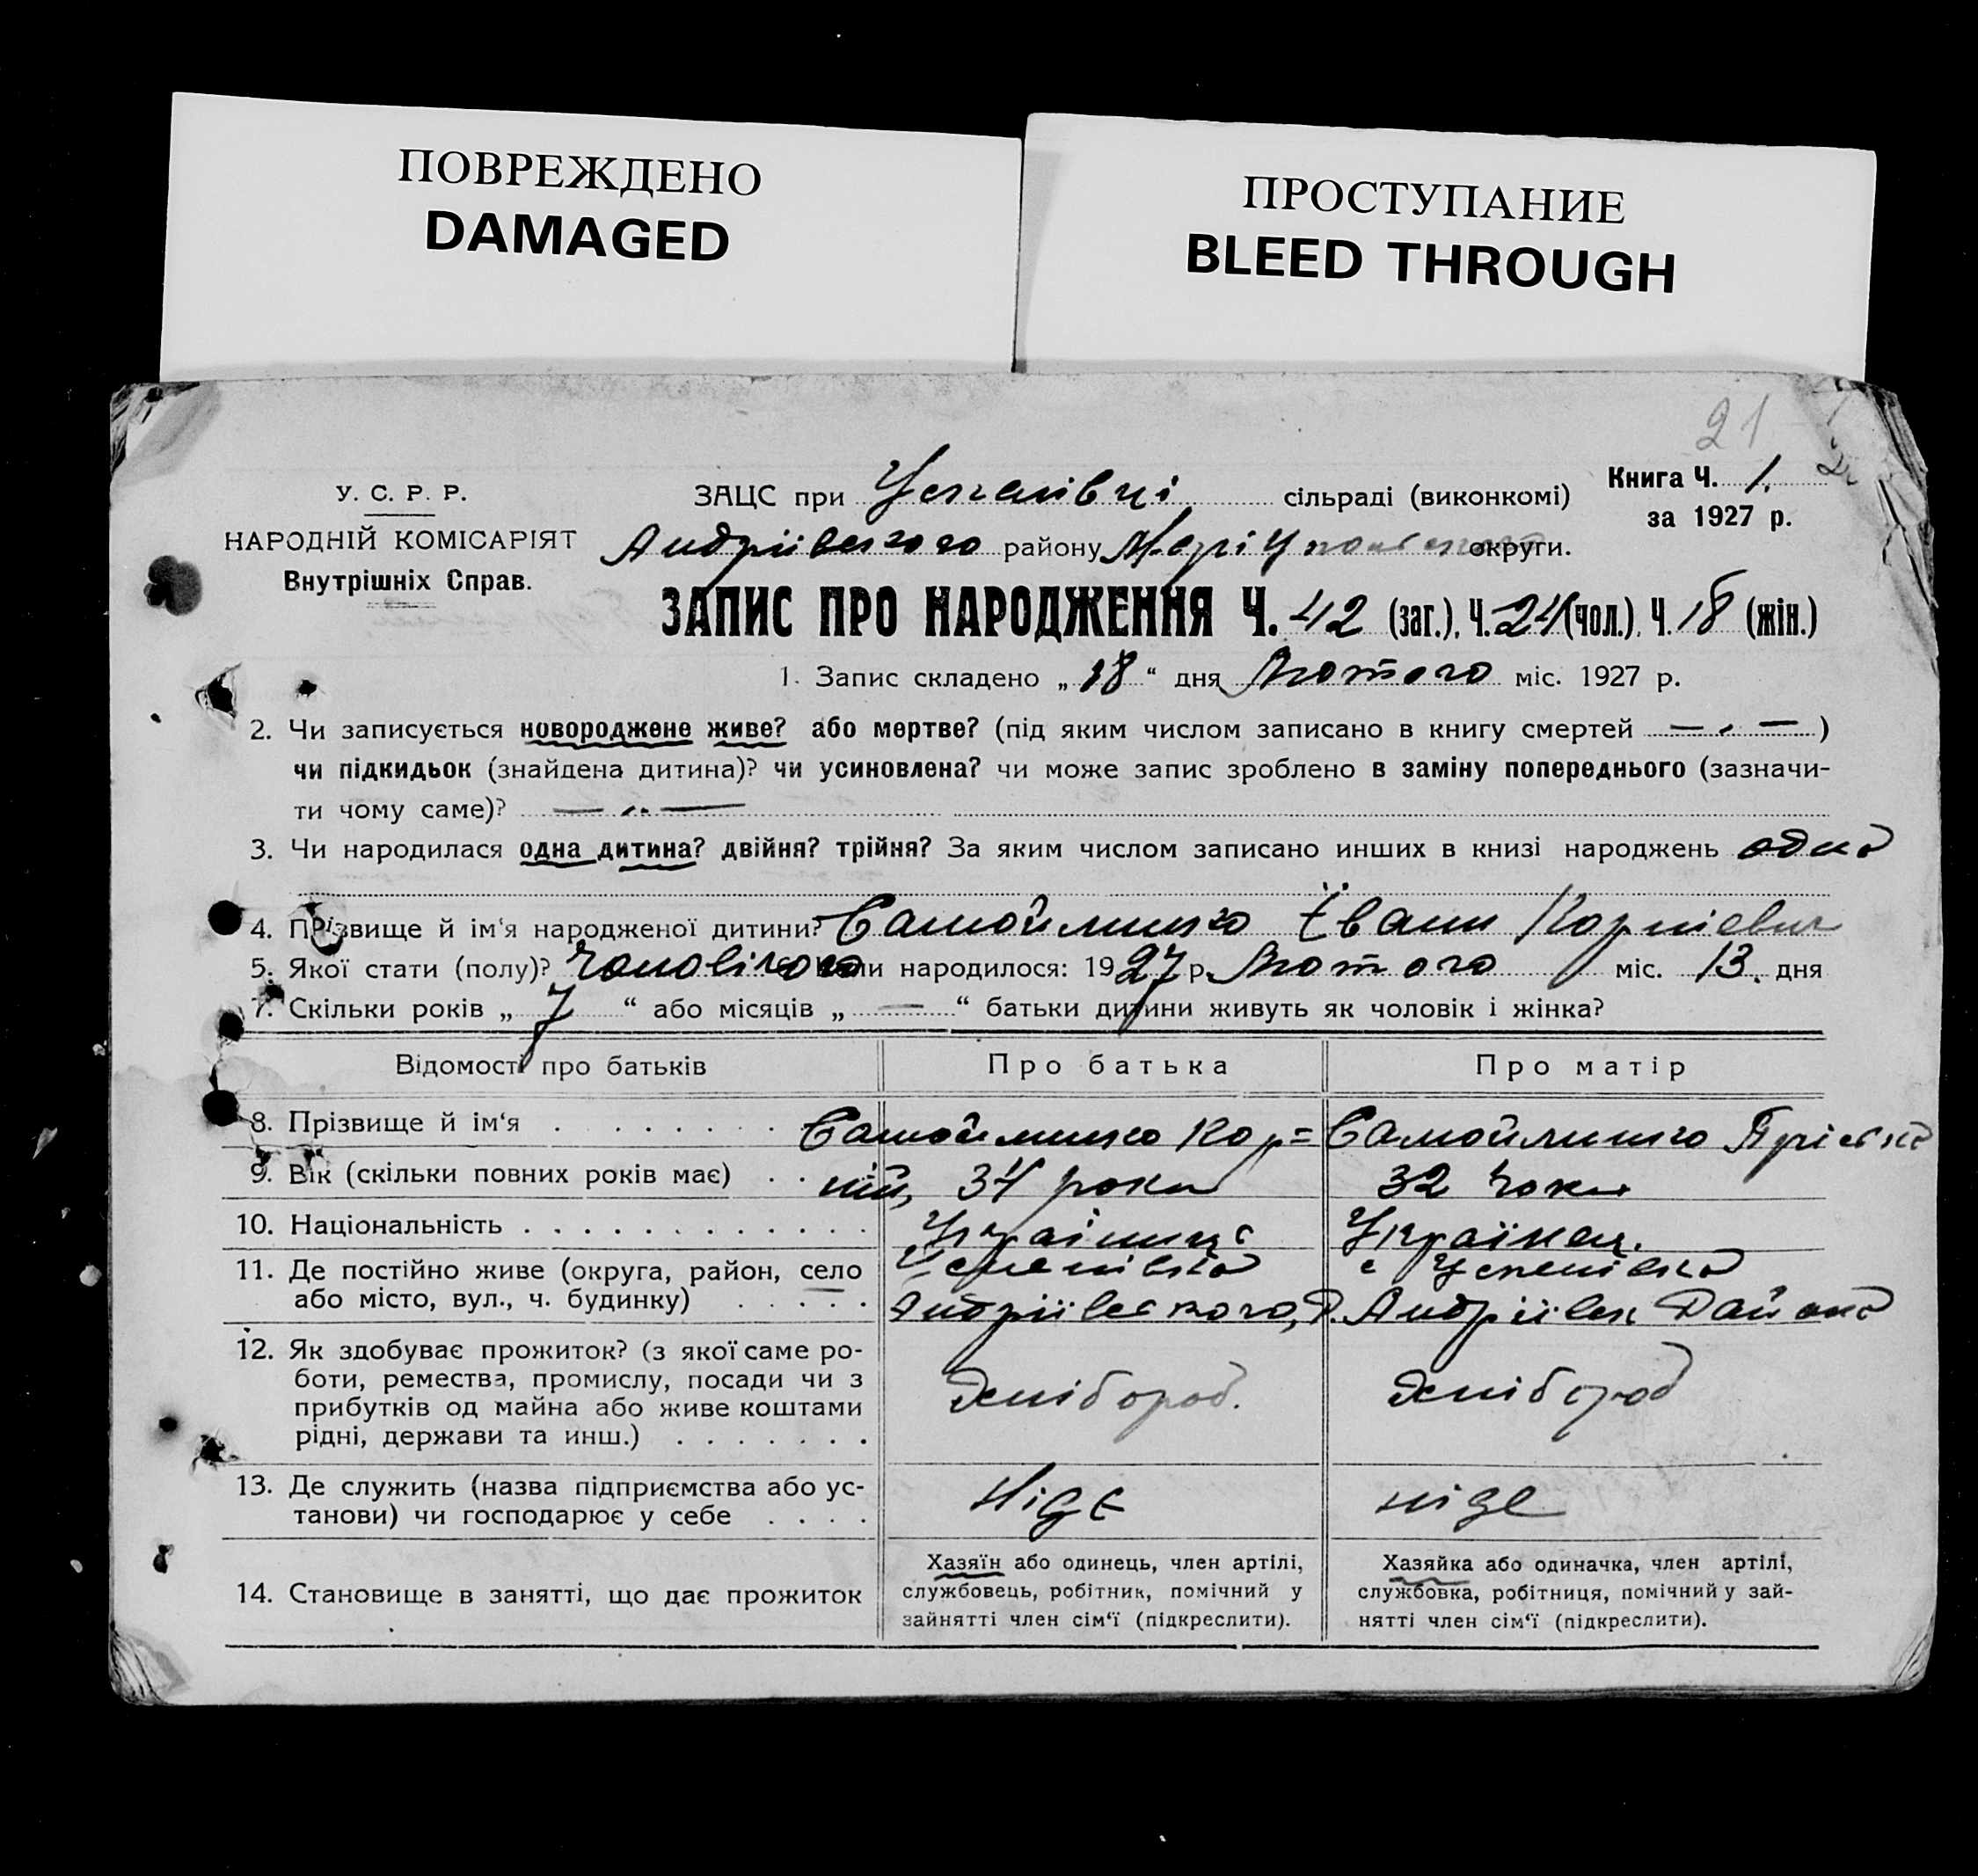 ПОВРЕЖДЕНО
DAMAGED
ПРОСТУПАНИЕ
BLEED THROUGH
21
У. С. Р. Р.
НАРОДНІЙ КОМІСАРІЯТ
Внутрішніх Справ.
ЗАЦС при Успенівці сільраді (виконкомі)
Книга Ч. 1.
за 1927 р.
Андріївського району Маріупольської округи.
ЗАПИС ПРО НАРОДЖЕННЯ Ч. 42 (заг.), Ч. 24 (чол.), Ч. 18 (жін.)
1. Запис складено „ 18 “ дня Лютого міс. 1927 р.
2. Чи записується новороджене живе? або мертве? (під яким числом записано в книгу смертей — „ — )
чи підкидьок (знайдена дитина)? чи усиновлена? чи може запис зроблено в заміну попереднього (зазначи-
ти чому саме)? — „ —
3. Чи народилася одна дитина? двійня? трійня? За яким числом записано инших в книзі народжень одна
4. Прізвище й ім‘я народженої дитини? Самойленко Іван Корнієвич
5. Якої стати (полу)? Чоловічого Коли народилося: 1927 р. Лютого міс. 13. дня
7. Скільки років „ 7 “ або місяців „ — “ батьки дитини живуть як чоловік і жінка?
Відомості про батьків Про батька Про матір
8. Прізвище й ім‘я Самойленко Кор= Самойленко
9. Вік (скільки повних років має) ній, 34 роки 32 роки
10. Національність Українець Українец.
11. Де постійно живе (округа, район, село Успенівка с Успенівка
або місто, вул., ч. будинку) Андріївського, Р. Андріївск Района
12. Як здобуває прожиток? (з якої саме ро-
боти, ремества, промислу, посади чи з
прибутків од майна або живе коштами
рідні, держави та инш.)
Хлібороб. Хлібороб
13. Де служить (назва підприємства або ус-
танови) чи господарює у себе
Нідє ніде
14. Становище в занятті, що дає прожиток
Хазяїн або одинець, член артілі,
службовець, робітник, помічний у
зайнятті член сім‘ї (підкреслити).
Хазяйка або одиначка, член артілі,
службовка, робітниця, помічний у зай-
нятті член сім‘ї (підкреслити).